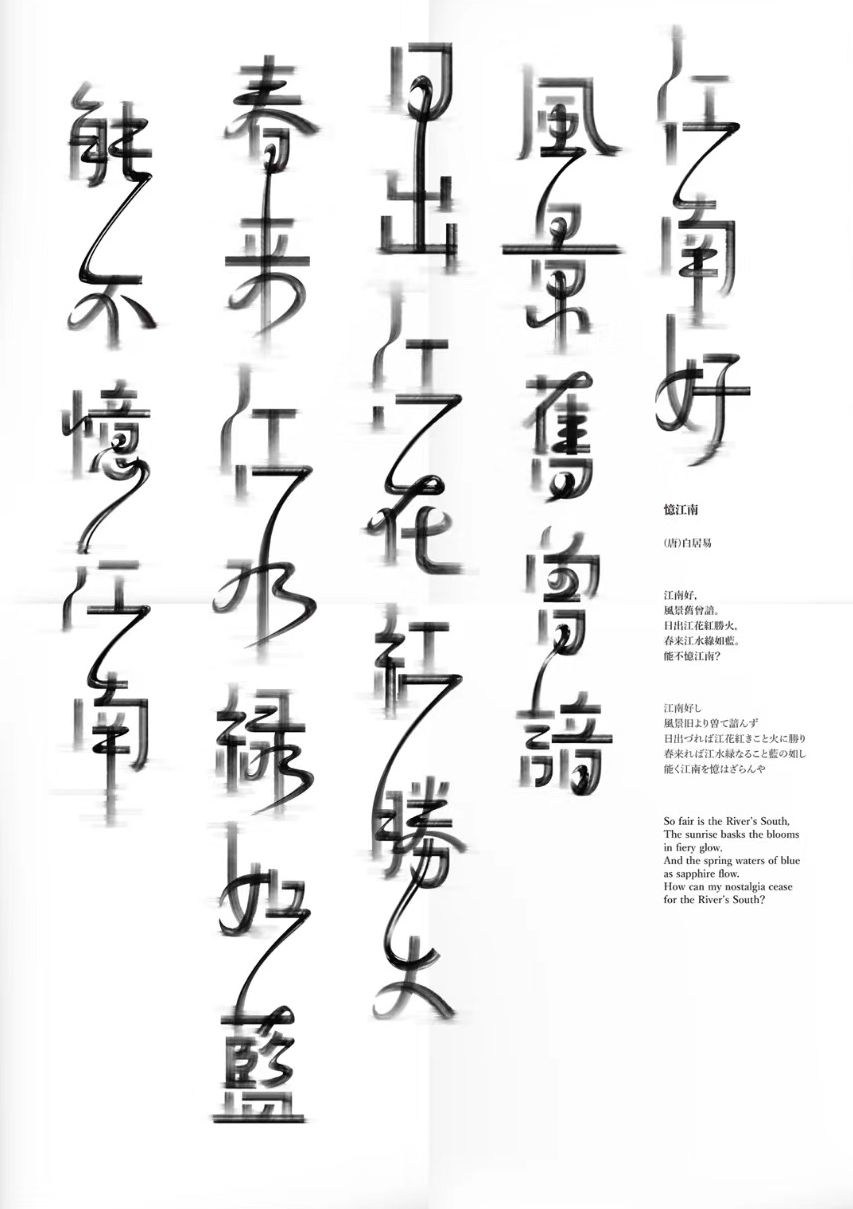 江南好
風景舊曾諳
日出江花紅勝火
春来江水緑如藍
能不憶江南
憶江南
(唐)白居易
江南好，
風景舊曾諳。
日出江花紅勝火，
春来江水綠如藍。
能不憶江南？
江南好し
風景旧より曽て諳んず
日出づれば江花紅きこと火に勝り
春来れば江水緑なること藍の如し
能く江南を憶はざらんや
So fair is the River's South,
The sunrise basks the blooms
in fiery glow,
And the spring waters of blue
as sapphire flow.
How can my nostalgia cease
for the River's South?